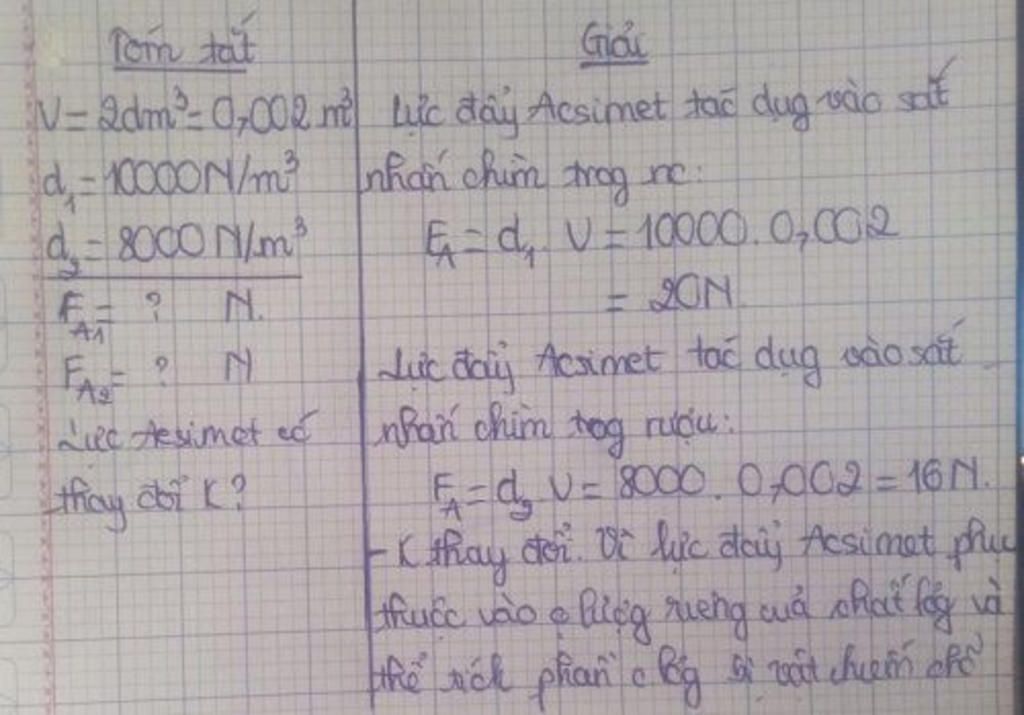 Tóm tắt
V = 2dm³ = 0,002 m³
d₁ = 10000N/m³
d₂ = 8000N/m³
F_A1 = ? N.
F_A2 = ? N
Lực Acsimet có
thay đổi K?
Giải
Lực đẩy Acsimet tác dụg vào sắt
nhấn chìm trog nc:
F_A = d₁. V = 10000. 0,002
= 20N.
Lực đẩy Acsimet tác dụg vào sắt
nhấn chìm trog rượu:
F_A = d₂ V = 8000. 0,002 = 16N.
- K thay đổi. Vì lực đẩy Acsimet phụ
thuộc vào lượg riêng cuả chất lỏg và
thể tích phần c lỏg bị vật chiếm chỗ